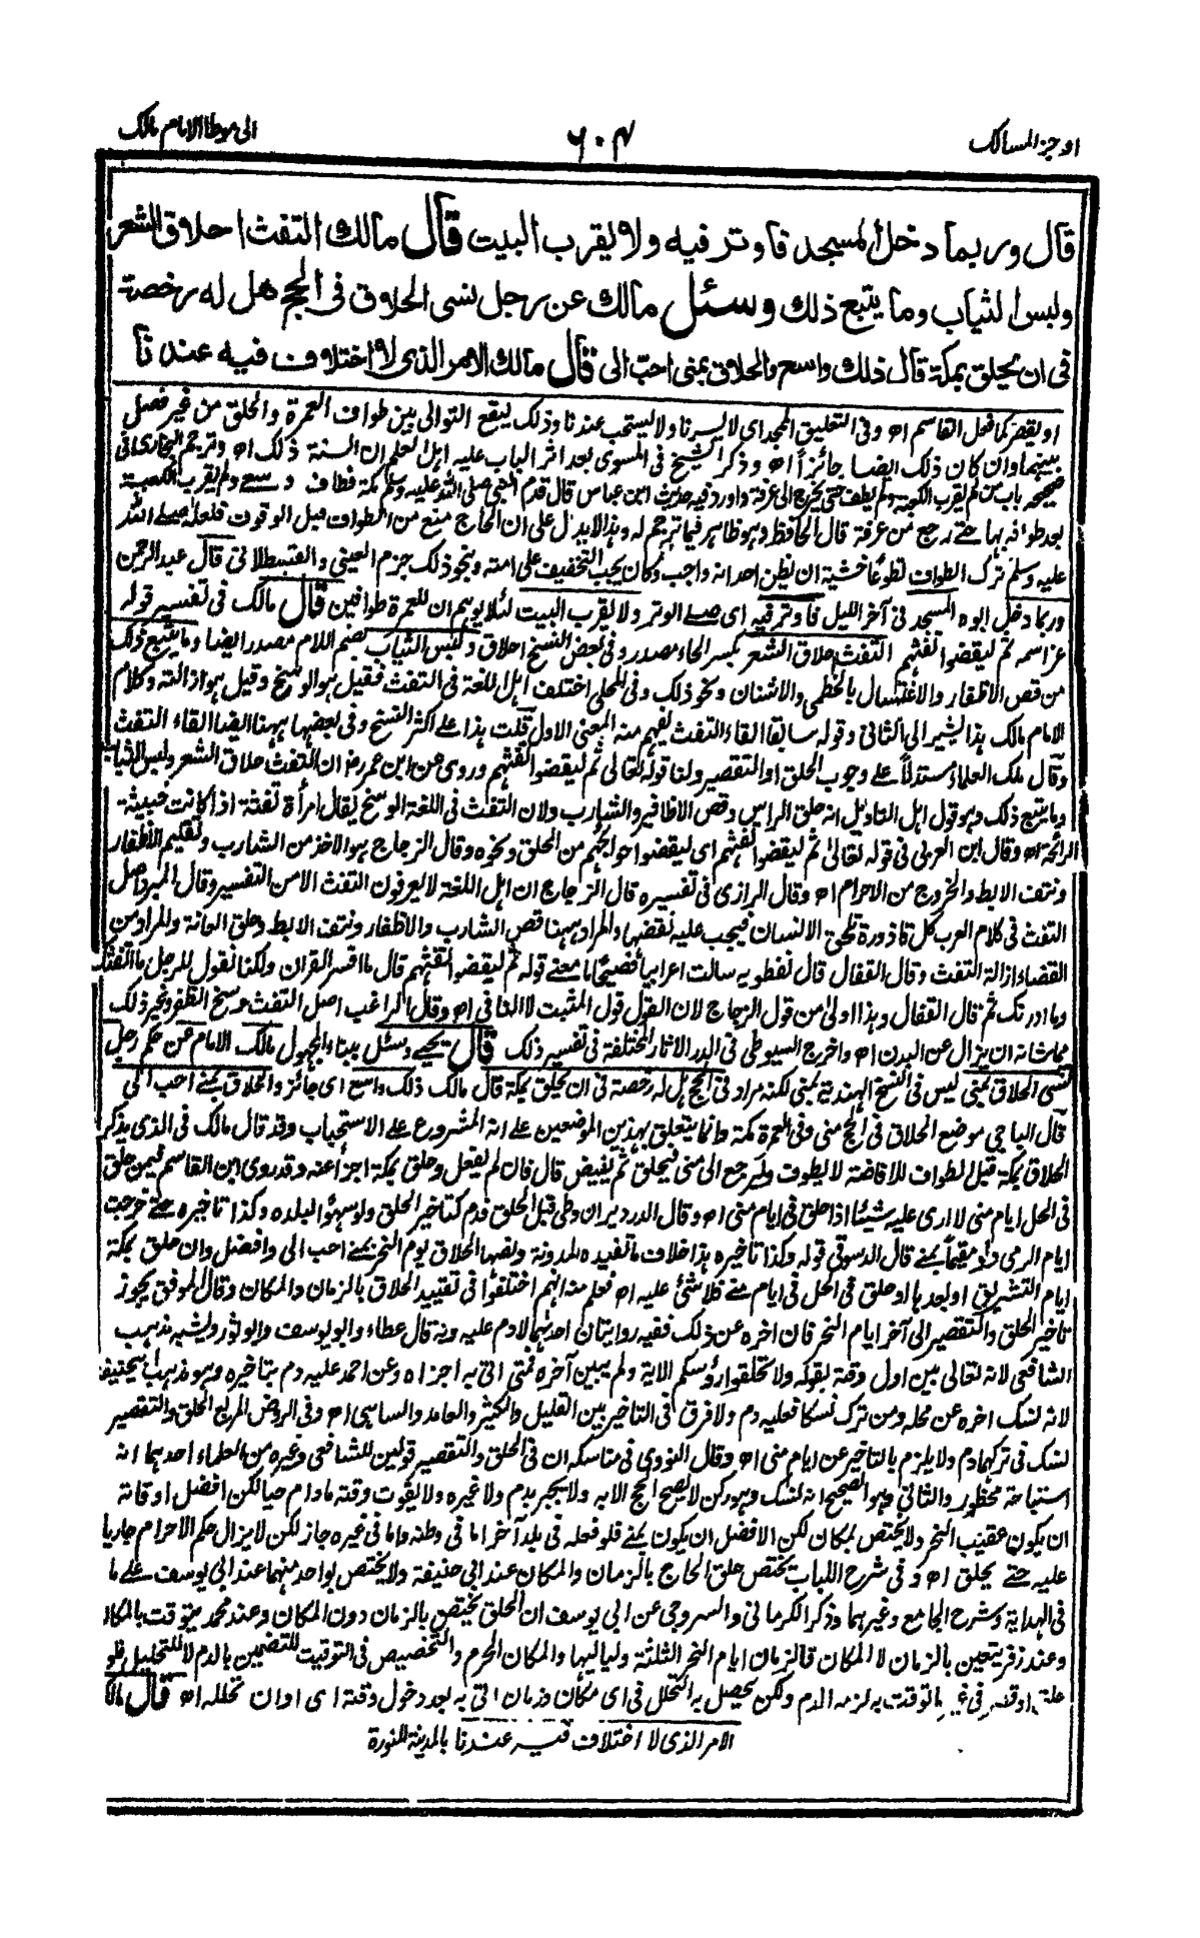 اوجز المسالك
٦٠٤
الى موطا الامام مالك
قال وربما دخل المسجد فاوتر فيه ولا يقرب البيت قال مالك التفث احلاق الشعر
ولبس الثياب وما يتبع ذلك وسئل مالك عن رجل نسى الحلاق فى الحج هل له رخصة
فى ان يحلق بمكة قال ذلك واسع والحلاق بمنى احبّ الى قال مالك الامر الذى لا اختلاف فيه عندنا
او يقصر كما فعل القاسم اه وفى التعليق الممجد اى لا يسرنا ولا يستحب عندنا وذلك ليقع التوالى بين طواف العمرة والحلق من غير فصل
بينهما وان كان ذلك ايضا جائزاً اه وذكر الشيخ فى المسوى بعد اثر الباب عليه اهل العلم ان السنة ذلك اه وترجم البخارى فى
صحيحه باب من لم يقرب الكعبة ولم يطف حتى يخرج الى عرفة واورد فيه حديث ابن عباس قال قدم النبى صلى الله عليه وسلم مكة فطاف وسعى ولم يقرب الكعبة
بعد طوافه بها حتے رجع من عرفة قال الحافظ وهو ظاهر فيما ترجم له وهذا لا يدل على ان الحاج منع من الطواف قبل الوقوف فلعله صلے الله
عليه وسلم ترك الطواف تطوعا خشية ان يظن احد انه واجب وكان يحب التخفيف على امته وبنحو ذلك جزم العينى والقسطلانى قال عبد الرحمن
وربما دخل ابوه المسجد فى آخر الليل فاوتر فيه اى صلے الوتر ولا يقرب البيت لئلا يوهم ان للعمرة طوافين قال مالك فى تفسير قوله
عز اسمه ثم ليقضوا تفثهم التفث حلاق الشعر بكسر الحاء مصدر وفى بعض النسخ احلاق ولبس الثياب بضم اللام مصدر ايضا وما يتبع ذلك
من قص الاظفار والاغتسال بالخطمى والاشنان ونحو ذلك وفى المحلى اختلف اهل اللغة فى التفث فقيل هو الوسخ وقيل هو ازالته وكلام
الامام مالك هذا يشير الى الثانى وقوله سابقا القاء التفث يفهم منه المعنى الاول قلت هذا علے اكثر النسخ وفى بعضها ههنا ايضا القاء التفث
وقال ملك العلماء مستدلاً علے وجوب الحلق او التقصير ولنا قوله تعالى ثم ليقضوا تفثهم وروى عن ابن عمر رض ان التفث حلاق الشعر ولبس الثياب
وما يتبع ذلك وهو قول اهل التاويل انه حلق الراس وقص الاظافير والشارب ولان التفث فى اللغة الوسخ يقال امرأة تفثة اذا كانت خبيثة
الرائحة اه وقال ابن العربى فى قوله تعالى ثم ليقضوا تفثهم اى ليقضوا حوائجهم من الحلق ونحوه وقال الزجاج هو الاخذ من الشارب وتقليم الاظفار
ونتف الابط والخروج من الاحرام اه وقال الرازى فى تفسيره قال الزجاج ان اهل اللغة لا يعرفون التفث الا من التفسير وقال المبرد اصل
التفث فى كلام العرب كل قاذورة تلحق الانسان فيجب عليه نقضها والمراد ههنا قص الشارب والاظفار ونتف الابط وحلق العانة والمراد من
القضاء ازالة التفث وقال القفال قال نفطويه سالت اعرابيا فصيحا ما معنے قوله ثم ليقضوا تفثهم قال ما افسر القران ولكنا نقول للرجل ما اتفثك
وما ادرنك ثم قال القفال وهذا اولى من قول الزجاج لان القول قول المثبت لا النافى اه وقال الراغب اصل التفث وسخ الظفر وغير ذلك
مما شانه ان يزال عن البدن اه واخرج السيوطى فى الدر الاثار المختلفة فى تفسير ذلك قال يحيے وسئل ببناء المجهول مالك الامام عن حكم رجل
نسى الحلاق بمنى ليس فى النسخ الهندية بمنى لكنه مراد فى الحج هل له رخصة فى ان يحلق بمكة قال مالك ذلك واسع اى جائز والحلاق بمنے احب الى
قال الباجى موضع الحلاق فى الحج منى وفى العمرة مكة وانما يتعلق بهذين الموضعين علے انه المشروع علے الاستحباب وقد قال مالك فى الذى يذكر
الحلاق بمكة قبل طواف للافاضة لا يطوف وليرجع الى منى فيحلق ثم يفيض قال فان لم يفعل وحلق بمكة اجزأ عنه وقد روى ابن القاسم فيمن حلق
فى الحل ايام منى لا ارى عليه شيئا اذا حلق فى ايام منى اه وقال الدردير ان وطى قبل الحلق فدم كتاخير الحلق ولو سهوا لبلده وكذا تاخيره حتے خرجت
ايام الرمى ولو مقيماً بمنے قال الدسوقى قوله وكذا تاخيره هذا خلاف ما تفيده المدونة ونصها الحلاق يوم النحر بمنے احب الى وافضل وان حلق بمكة
ايام التشريق او بعدها او حلق فى الحل فى ايام منے فلا شئ عليه اه فعلم منه انهم اختلفوا فى تقييد الحلاق بالزمان والمكان وقال الموفق يجوز
تاخير الحلق والتقصير الى آخر ايام النحر فان اخره عن ذلك ففيه روايتان احدهما لا دم عليه وبه قال عطاء وابو يوسف وابو ثور ويشبه مذهب
الشافعى لانه تعالى بين اول وقته بقوله ولا تحلقوا رؤسكم الاية ولم يبين آخره فمتى اتى به اجزاه وعن احمد عليه دم بتاخيره وهو مذهب ابيحنيفة
لانه نسك اخره عن محله ومن ترك نسكا فعليه دم ولا فرق فى التاخير بين القليل والكثير والعامد والساهى اه وفى الروض المربع الحلق والتقصير
نسك فى تركهما دم ولا يلزم بالتاخير عن ايام منى اه وقال النووى فى مناسكه ان فى الحلق والتقصير قولين للشافعى وغيره من العلماء احدهما انه
استباحة محظور والثانى وهو الصحيح انه نسك وهو ركن لا يصح الحج الا به ولا يجبر بدم ولا غيره ولا يفوت وقته مادام حيا لكن افضل اوقاته
ان يكون عقيب النحر ولا يختص بمكان لكن الافضل ان يكون بمنے فلو فعله فى بلد آخر اما فى وطنه واما فى غيره جاز لكن لا يزال حكم الاحرام جاريا
عليه حتے يحلق اه وفى شرح اللباب يختص حلق الحاج بالزمان والمكان عند ابى حنيفة ولا يختص بواحد منهما عند ابى يوسف علے ما
فى الهداية وشرح الجامع وغيرهما وذكر الكرمانى والسروجى عن ابى يوسف ان الحلق يختص بالزمان دون المكان وعند محمد يتوقت بالمكان
وعند زفر يتعين بالزمان لا المكان فالزمان ايام النحر الثلثة ولياليها والمكان الحرم والتخصيص فى التوقيت للتضمين بالدم لا للتحليل فلو
حلق او قصر فى غير ما توقت به لزمه الدم ولكن يحصل به التحلل فى اى مكان وزمان اتى به بعد دخول وقته اى اوان تحلله اه قال مالك
الامر الذى لا اختلاف فيه عندنا بالمدينة المنورة